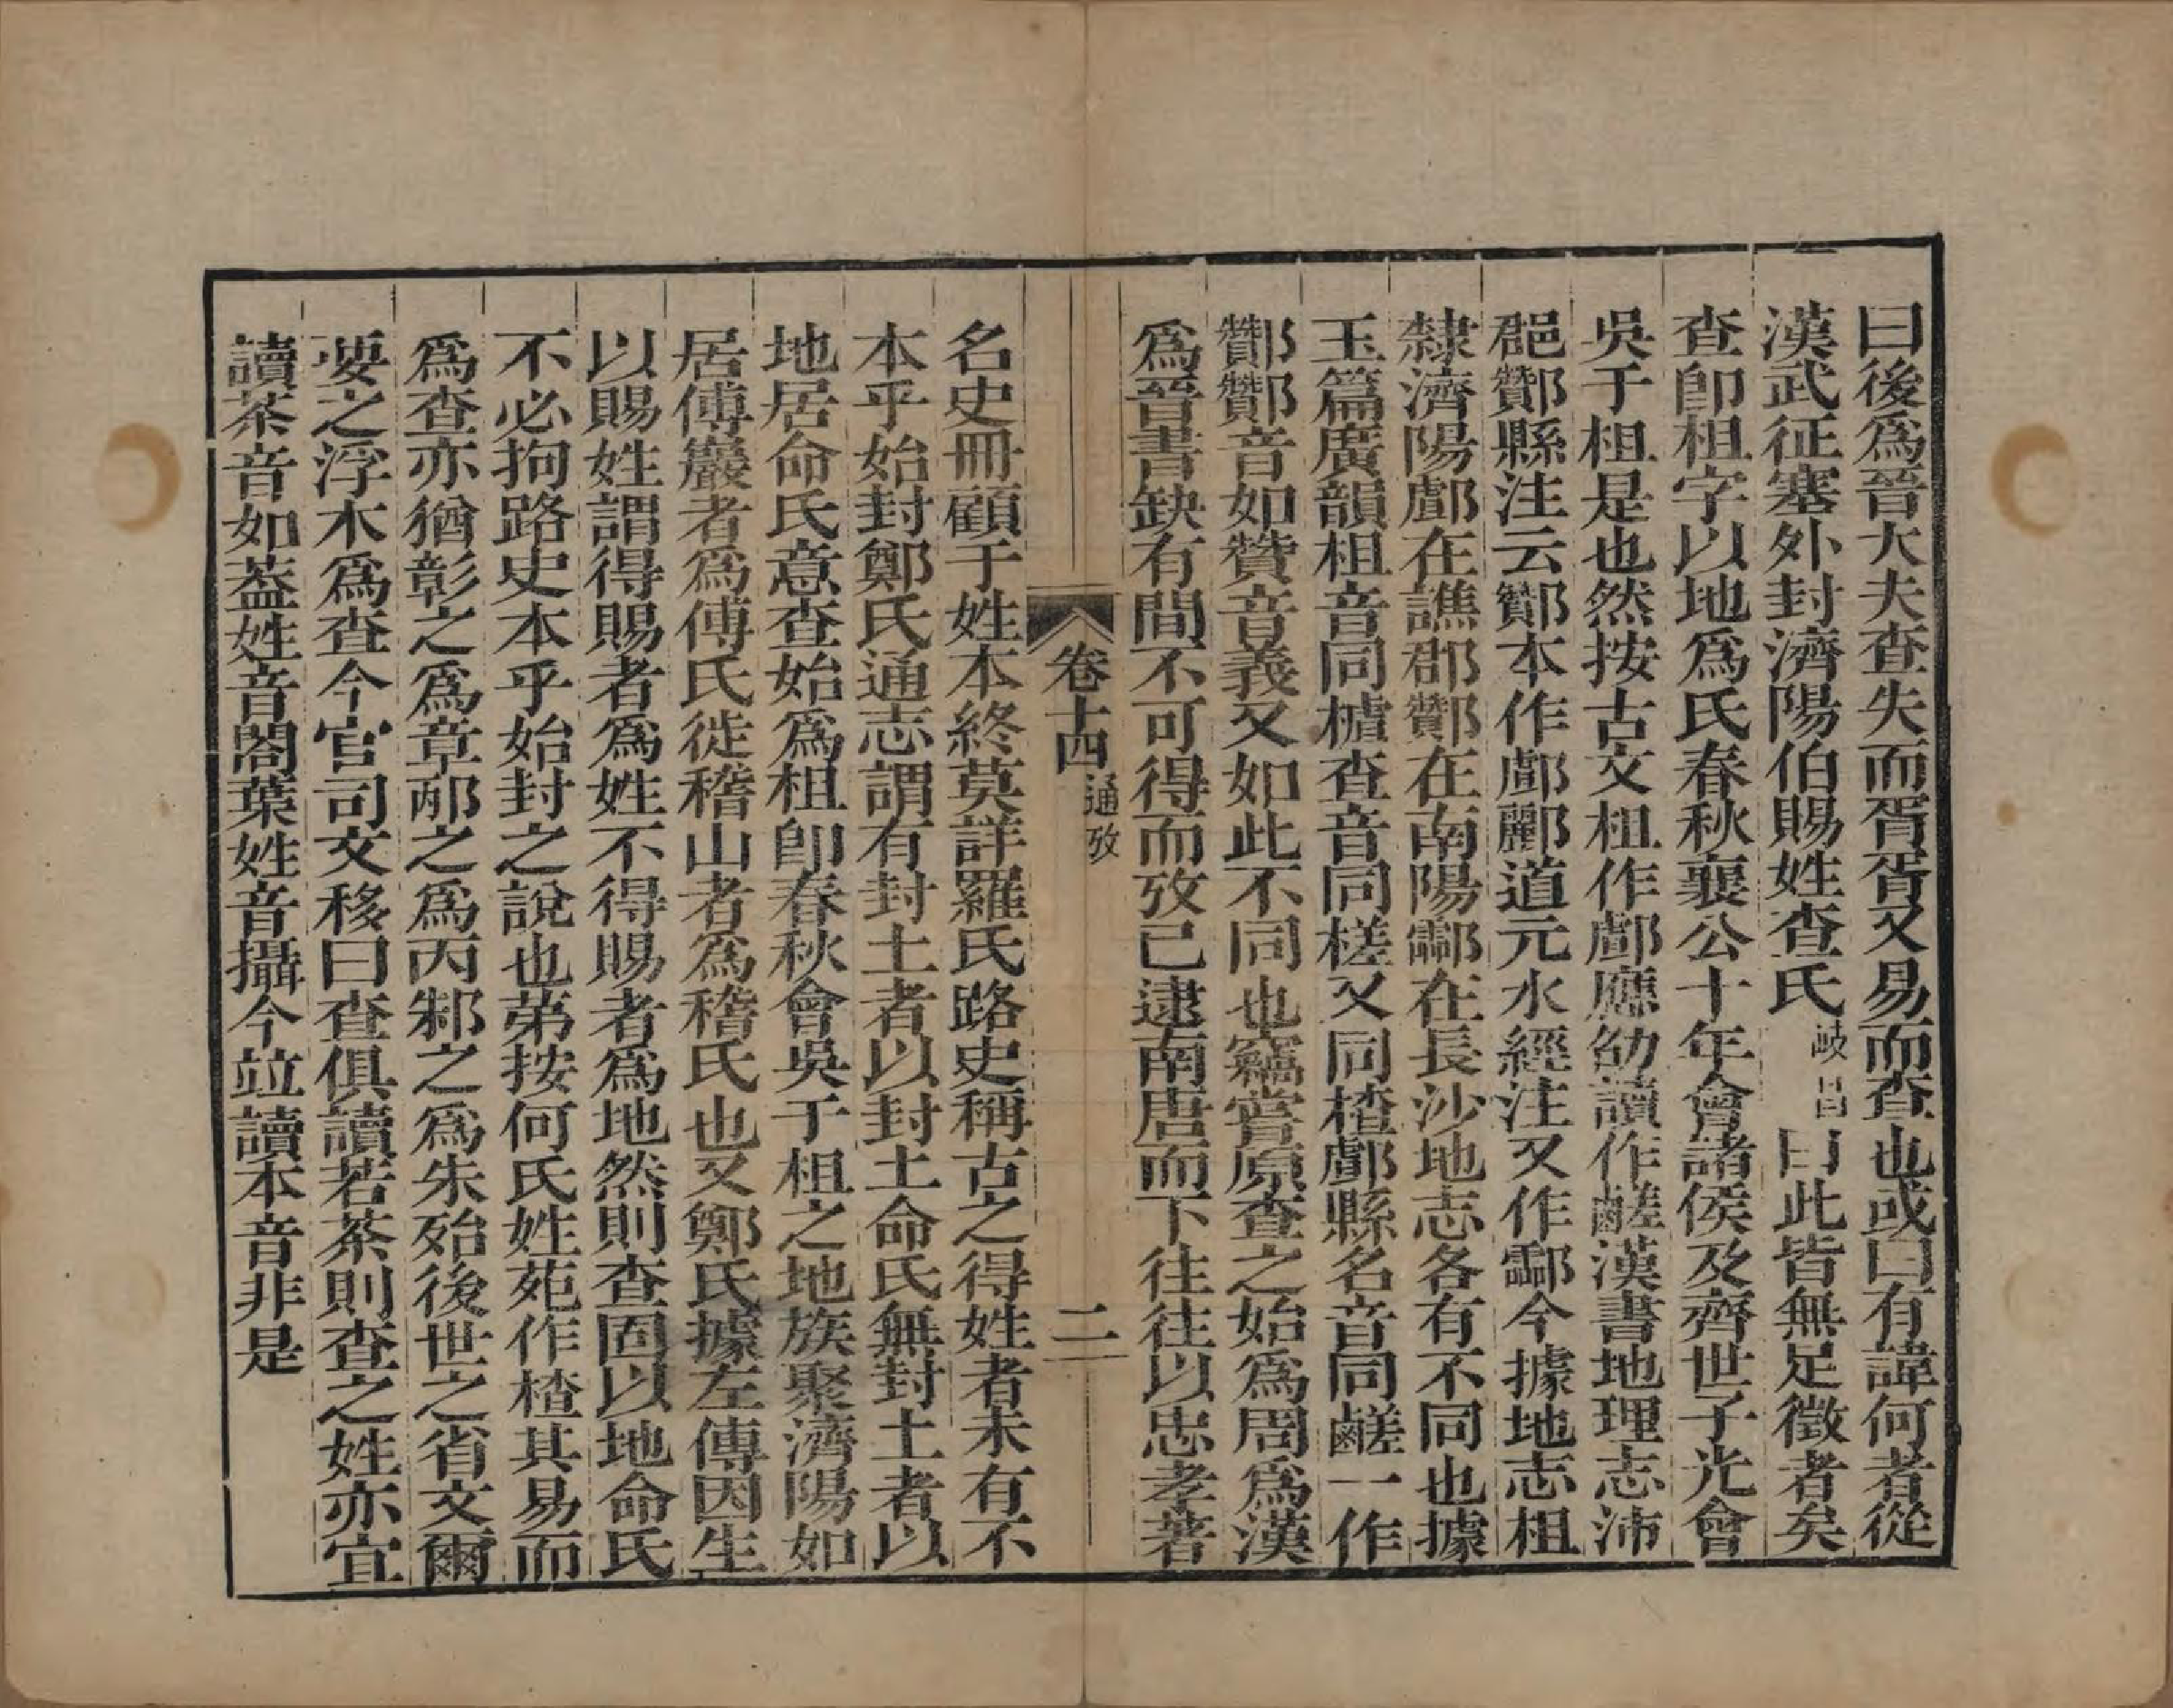 曰後爲晉大夫查失而胥胥又易而查也或曰有諱何者從
漢武征塞外封濟陽伯賜姓查氏岐昌曰此皆無足徵者矣
查卽柤字以地爲氏春秋襄公十年會諸侯及齊世子光會
吳于柤是也然按古文柤作鄌應劭讀作䴾漢書地理志沛
郡酇縣注云酇本作鄌酈道元水經注又作酃今據地志柤
隸濟陽鄌在譙郡酇在南陽酃在長沙地志各有不同也據
玉篇廣韻柤音同樝查音同槎又同楂鄌縣名音同䴾一作
酇酇音如贊音義又如此不同也竊嘗原查之始爲周爲漢
爲晉書缺有間不可得而攷已逮南唐而下往往以忠孝著
卷十四通攷 二
名史冊顧于姓本終莫詳羅氏路史稱古之得姓者未有不
本乎始封鄭氏通志謂有封土者以封土命氏無封土者以
地居命氏意查始爲柤卽春秋會吳于柤之地族聚濟陽如
居傅巖者爲傅氏徙稽山者爲稽氏也又鄭氏據左傳因生
以賜姓謂得賜者爲姓不得賜者爲地然則查固以地命氏
不必拘路史本乎始封之說也弟按何氏姓苑作楂其易而
爲查亦猶彰之爲章邴之爲丙邾之爲朱殆後世之省文爾
要之浮木爲查今官司文移曰查俱讀若茶則查之姓亦宜
讀茶音如葢姓音閣葉姓音攝今竝讀本音非是